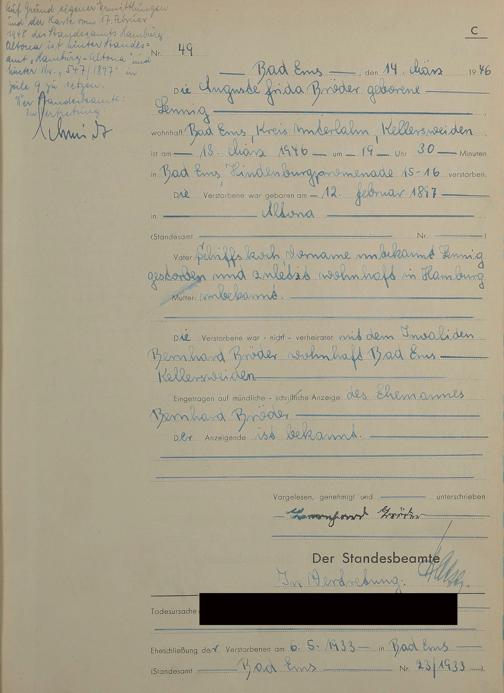 Auf Grund eigener Ermittlungen
und der Karte vom 17. Februar
1948 des Standesamts Hamburg
Altona ist hinter Standes-
amt „Hamburg-Altona" und
hinter Nr. „547/1897" in
Zeile 9 zu setzen.
Der Standesbeamte:
In Vertretung
Schmidt
C
Nr. 49
Bad Ems, den 14. März 1946
Die Auguste Frida Bröder geborene
Lennig
wohnhaft Bad Ems, Kreis Unterlahn, Kellersweiden
ist am 13. März 1946 um 19 Uhr 30 Minuten
in Bad Ems, Hindenburgpromenade 15-16 verstorben.
Die Verstorbene war geboren am 12. Februar 1897
in Altona
(Standesamt Nr. )
Vater: Schiffskoch, Vorname unbekannt Lennig
gestorben und zuletzt wohnhaft in Hamburg
Mutter: unbekannt.
Die Verstorbene war - nicht - verheiratet mit dem Invaliden
Bernhard Bröder wohnhaft Bad Ems
Kellersweiden
Eingetragen auf mündliche - schriftliche Anzeige des Ehemannes
Bernhard Bröder
Der Anzeigende ist bekannt.
Vorgelesen, genehmigt und unterschrieben
Bernhard Bröder
Der Standesbeamte
In Vertretung:
Todesursache:
Eheschließung der Verstorbenen am 6. 5. 1933 in Bad Ems
(Standesamt Bad Ems Nr. 23/1933 ).